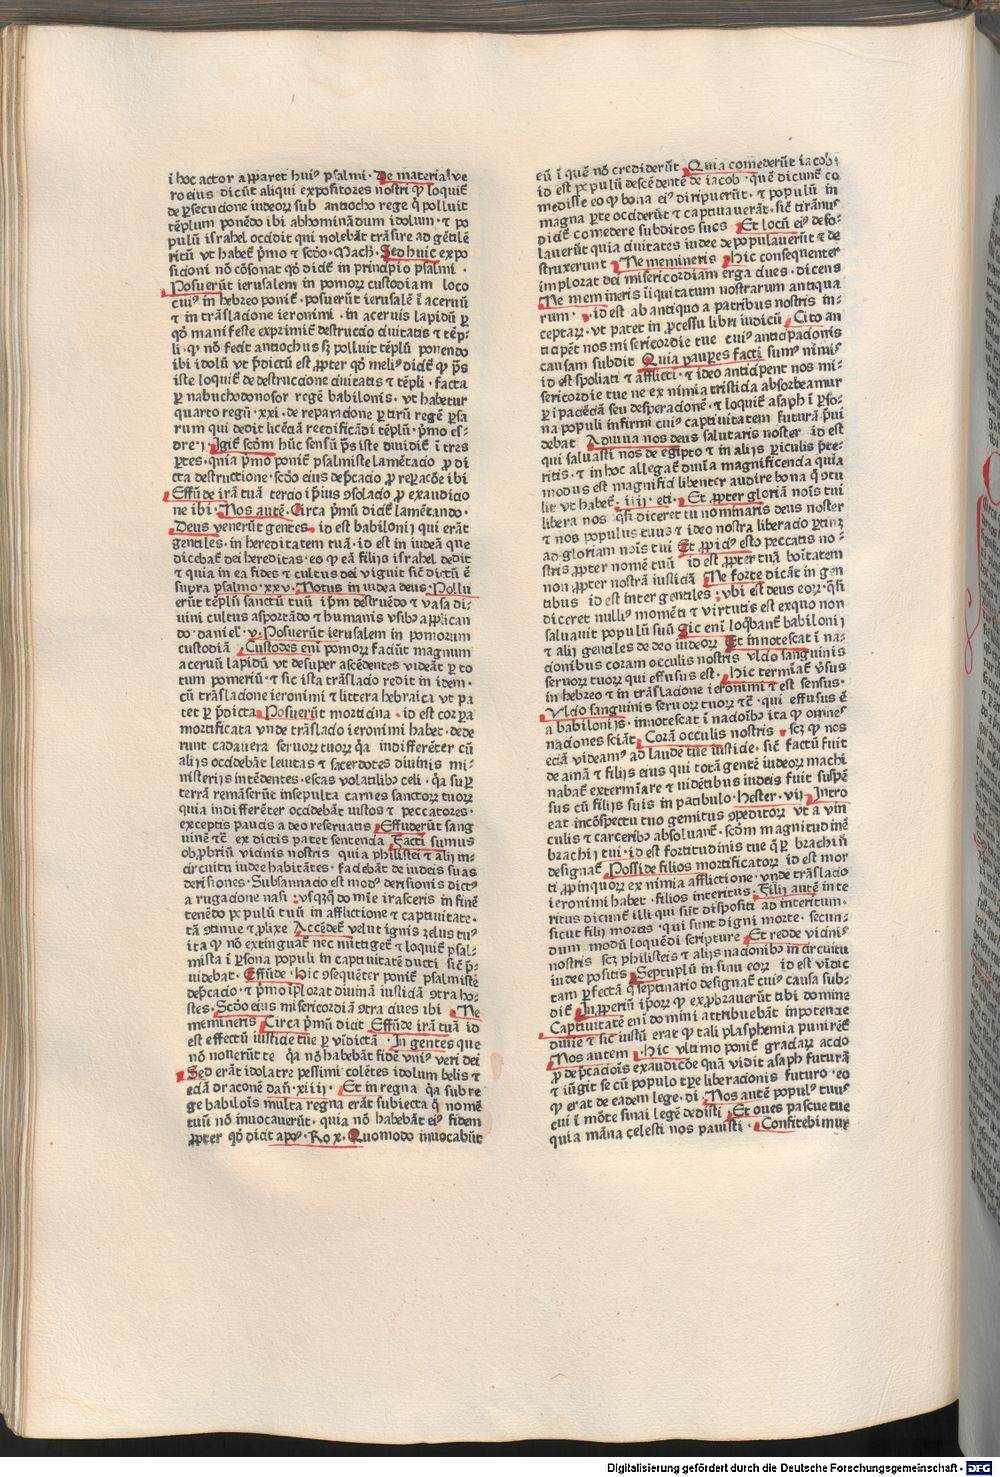 ī hoc actor apparet huiꝰ psalmi · De materia ve
ro eius dicūt aliqui expositores nostri ꝙ loquiť
de ꝑsecucione iudeoꝝ sub antiocho rege q̄ polluit
tēplum ponēdo ibi abhominādum idolum · ⁊ po
pulū israhel occidit qui nolebāt trāsire ad gētilē
ritū vt habeť p̄mo ⁊ scd̄o · Mach · Sed huic expo
sicioni nō cōsonat qd̄ diciť in principio psalmi ·
Posuerūt ierusalem in pomoꝝ custodiam loco
cuiꝰ in hebreo poniť · posuerūt ierusalē ī aceruū
⁊ in trāslacione ieronimi · in aceruis lapidū ꝑ
qd̄ manifeste exprimiť destructio ciuitatis ⁊ tēp-
li · ꝙ nō fecit antiochus sꝫ polluit tēplū ponendo
ibi idolū vt p̄dictū est ꝓpter qd̄ meliꝰ diciť ꝙ p̄s
iste loquiť de destructione ciuitatis ⁊ tēpli · facta
ꝑ nabuchodonosor regē babilonis · vt habetur
quarto regū · xxi · de reparacione ꝑ cirū regē ꝑsa
rum qui dedit licēciā reedificādi tēplū · p̄mo es-
dre · ı · Igiť scd̄m hūc sensū p̄s iste diuidiť ī tres
ꝑtes · quia p̄mo poniť psalmiste lamētacio ꝓ di
cta destructione · scd̄o eius dep̄cacio ꝓ reꝑacōe ibi
Effūde irā tuā tercio ip̄ius ꝯsolacio ꝓ exaudicio
ne ibi · Nos autē · Circa p̄mū diciť lamētando ·
Deus venerūt gentes · id est babilonij qui erāt
gentiles · in hereditatem tuā · id est in iudeā que
dicebať dei hereditas · eo ꝙ eā filijs israhel dedit
⁊ quia in ea fides ⁊ cultus dei viguit sic̄ dictū ē
supra psalmo · xxv · Notus in iudea deus · Pollu
erūt tēplū sanctū tuū ip̄m destruēdo ⁊ vasa di-
uini cultus asportādo ⁊ humanis vsibꝰ applican
do · daniel · v · Posuerūt ierusalem in pomorum
custodiā · Custodes eni pomoꝝ faciūt magnum
aceruū lapidū vt desuper ascēdentes videāt ꝑ to
tum pomeriū · ⁊ sic ista trāslacio redit in idem ·
cū trāslacione ieronimi ⁊ littera hebraica vt pa
tet ꝑ p̄dicta · Posuerūt morticina · id est corꝑa
mortificata vnde trāslacio ieronimi habet · dede
runt cadauera seruoꝝ tuoꝝ q̄a indifferēter cū
alijs occidebāt leuitas ⁊ sacerdotes diuinis mi-
nisterijs intēdentes · escas volatilibꝰ celi · q̄a suꝑ
terrā remāserūt insepulta carnes sanctoꝝ tuoꝝ
quia indifferēter occidebāt iustos ⁊ peccatores ·
exceptis paucis a deo reseruatis · Effuderūt sang
uinē ⁊c̄ ex dictis patet sentencia · Facti sumus
obꝓbriū vicinis nostris quia philistei ⁊ alij in-
circuitu iudee habitātes · faciebāt de iudeis suas
derisiones · Subsannacio est modꝰ derisionis dictꝰ
a rugacione nasi · vsqꝫqͦ do mīe irasceris in finē
tenēdo populū tuū in afflictione ⁊ captiuitate ·
tā ꝯtinue ⁊ plixe · Accēdeť velut ignis zelus tuꝰ
ita ꝙ nō extinguať nec mitageť ⁊ loquiť psal-
mista ī ꝑsona populi in captiuitatē ducti sic̄ p̄-
uidebat · Effūde · Hic ꝯsequēter poniť psalmiste
dep̄cacio · ⁊ p̄mo īplorat diuinā iusticiā ꝯtra ho-
stes · Scd̄o eius misericordiā ꝯtra ciues ibi · Ne
memineris · Circa p̄mū dicit Effūde irā tuā id
est effectū iusticie tue ꝑ vidictā · In gentes que
nō nouerūt te q̄a nō habebāt fidē vniꝰ veri dei
Sed erāt idolatre pessimi colētes idolum belis ⁊
eciā draconē dan̄ · xiiii · Et in regna q̄a sub re
ge babilois multa regna erāt subiecta q̄ nomē
tuū nō inuocauerūt · quia nō habebāt eiꝰ fidem
ꝓpter qd̄ dicit apoꝰ · Ro x · Quomodo inuocabūt
eū ī quē nō crediderūt · Quia comederūt iacob ·
id est populū descēdentē de iacob · quē dicunť co
medisse eo ꝙ bona eiꝰ diripuerūt · ⁊ populū in
magna ꝑte occiderūt ⁊ captiuauerāt · sic̄ tirānus
diciť comedere subditos suos · Et locū eiꝰ deso-
lauerūt quia ciuitates iudee depopulauerūt ⁊ de
struxerunt · Ne memineris · Hic consequenter
implorat dei misericordiam erga ciues · dicens
Ne memineris iniquitatum nostrarum antiqua
rum · id est ab antiquo a patribus nostris in-
ceptaꝝ · vt patet in ꝓcessu libri iudicū · Cito an
ticipēt nos misericordie tue cuiꝰ anticipacionis
causam subdit · Quia pauꝑes facti sumꝰ nimis
id est spoliati ⁊ afflicti · ⁊ ideo anticipent nos mi-
sericordie tue ne ex nimia tristicia absorbeamur
ꝑ īpaciēciā seu desperacionē · ⁊ loquiť asaph ī ꝑso-
na populi infirmi cuiꝰ captiuitatem futurā p̄ui
debat · Adiuua nos deus salutaris noster id est
qui saluasti nos de egipto ⁊ in alijs ꝑiculis p̄te-
ritis · ⁊ in hoc allegať diuīa magnificencia quia
modus est magnifici libenter audire bona q̄ ꝯtu
lit vt habeť · iiij · eti · Et ꝓpter gloriā nois tui
libera nos q̄si diceret tu nominaris deus noster
⁊ nos populus tuus ⁊ ideo nostra liberacio ꝑtinꝫ
ad gloriam nois tui · Et ꝓpiciꝰ esto peccatis no-
stris ꝓpter nomē tuū id est ꝓpter tuā boitatem
non ꝓpter nostrā iusticiā · Ne forte dicāt in gen
tibus id est inter gentiles · vbi est deus eoꝝ · q̄si
diceret nulliꝰ momēti ⁊ virtutis est exquo non
saluauit populū suū · Sic eni loq̄banť babilonij
⁊ alij gentiles de deo iudeoꝝ · Et innotescat ī na-
cionibus coram occulis nostris vlcio sanguinis
seruoꝝ tuoꝝ qui effusus est · Hic termīať v̄sus
in hebreo ⁊ in trāslacione ieronimi ⁊ est sensus ·
Vlcio sanguinis seruoꝝ tuoꝝ ⁊c̄ · qui effusus ē
a babilonijs · innotescat ī naciōibꝰ ita ꝙ omnes
naciones sciāt · Corā occulis nostris · scꝫ ꝙ nos
eciā videamꝰ ad laudē tue iusticie · sic̄ factū fuit
de amā ⁊ filijs eius qui totā gentē iudeoꝝ machi
nabať extermīare ⁊ vidētibus iudeis fuit suspē
sus cū filijs suis in patibulo · Hester · vij · Intro
eat incōspectu tuo gemitus ꝯpeditoꝝ vt a vin
culis ⁊ carceribꝰ absoluanť · scd̄m magnitudinē
brachij tui · id est fortitudinis tue q̄ ꝑ brachiū
designať · Posside filios mortificatoꝝ id est mor
ti ꝓpinquoꝝ ex nimia afflictione · vnde trāslacio
ieronimi habet · filios interitus · Filij autē inte
ritus dicunť illi qui sūt dispositi ad interitum ·
sicut filij mortis · qui sunt digni morte · secun-
dum modū loquēdi scripture · Et redde vicinis
nostris scꝫ philisteis ⁊ alijs nacionibꝰ in circuitu
iudee positis · Septuplū in sinu eoꝝ id est vīdic
tam ꝑfectā q̄ septinario designať cuiꝰ causa sub-
diť · Inproꝑiū ip̄oꝝ ꝙ exprobrauerūt tibi domine
Captiuitatē eni domini attribuebāt inpotencie
diuīe ⁊ sic iustū erat ꝙ tali plasphemia punireť
Nos autem · Hic vltimo poniť graciaꝝ actio
ꝓ dep̄caciois exaudicōe quā vidit asaph futurā
⁊ iūgit se cū populo tꝑe liberacionis futuro · eo
ꝙ erat de eadem lege · di · Nos autē populꝰ tuus
cui ī mōte sinai legē dedisti · Et oues pascue tue
quia māna celesti nos pauisti · Confitebimur
Digitalisierung gefördert durch die Deutsche Forschungsgemeinschaft - DFG